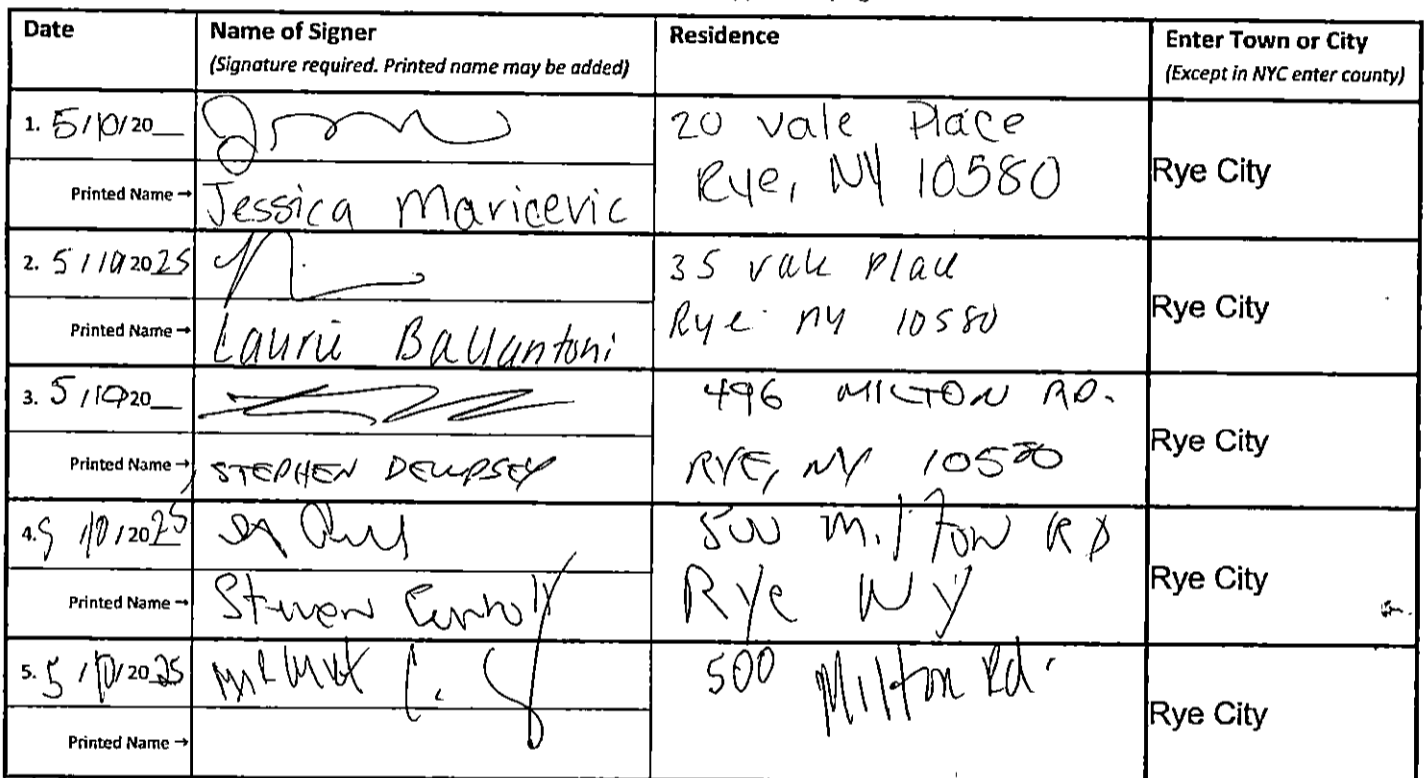 Date Name of Signer Residence Enter Town or City
(Signature required. Printed name may be added) (Except in NYC enter county)
1. 5/10/20__ 20 Vale Place
Rye, NY 10580 Rye City
Printed Name → Jessica Maricevic
2. 5/10/2025 35 Vale Place
Rye NY 10580 Rye City
Printed Name → Laurie Ballantoni
3. 5/10/20__ 496 MILTON RD.
RYE, NY 10580 Rye City
Printed Name → STEPHEN DEMPSEY
4. 5/10/2025 500 Milton RD
Rye NY Rye City
Printed Name → Steven
5. 5/10/2025 500 Milton Rd.
Rye City
Printed Name →